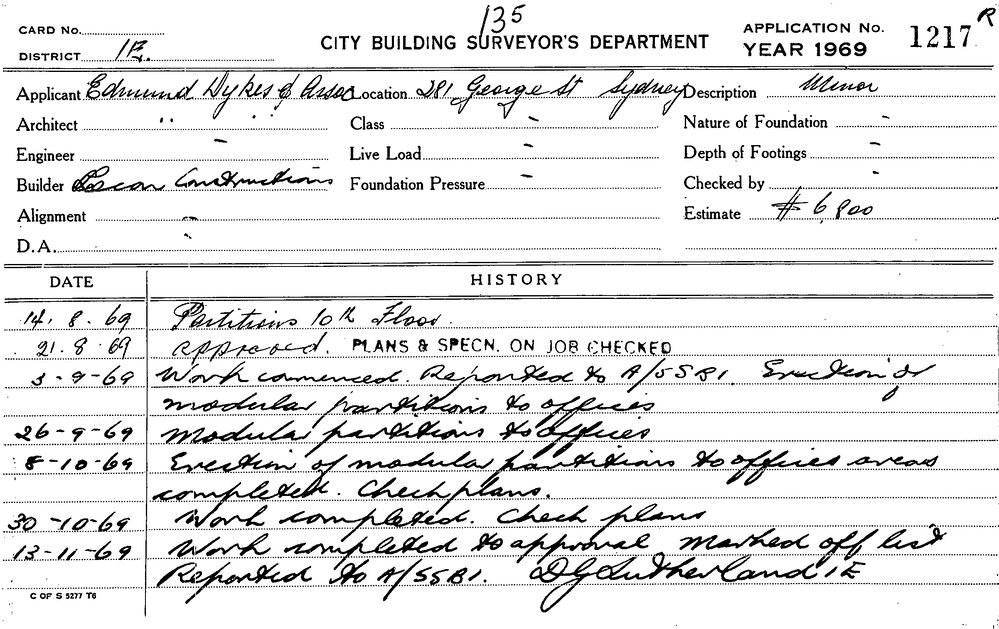 135
CARD No.
CITY BUILDING SURVEYOR'S DEPARTMENT
APPLICATION No. 1217 R
YEAR 1969
DISTRICT 1E.
Applicant Edmund Dykes & Assoc Location 281 George St Sydney Description Minor
Architect " " " Class - Nature of Foundation -
Engineer - Live Load - Depth of Footings -
Builder Constructions Foundation Pressure - Checked by -
Alignment - Estimate $ 6,800
D.A. -
DATE HISTORY
14.8.69 Partitions 10th Floor.
21.8.69 approved. PLANS & SPECN. ON JOB CHECKED
3-9-69 Work commenced. Reported to A/SSB1. Erection of
modular partitions to offices
26-9-69 Modular partitions to offices
8-10-69 Erection of modular partitions to offices areas
completed. Check plans.
30-10-69 Work completed. Check plans
13-11-69 Work completed to approval marked off list
Reported to A/SSB1. D G Sutherland 1E
C OF S 5277 T6